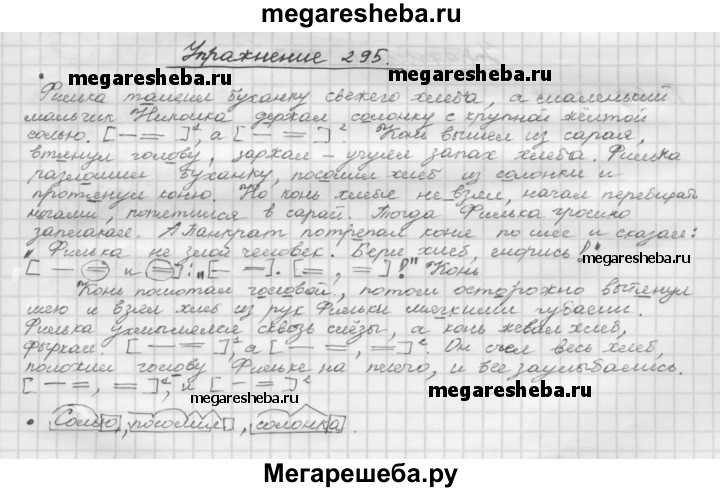 megaresheba.ru
Упражнение 295.
megaresheba.ru megaresheba.ru
Филька тащил буханку свежего хлеба, а маленький
мальчик Николка держал солонку с крупной жёлтой
солью. [— =]¹, а [— =]². Конь вышел из сарая,
втянул голову, заржал – учуял запах хлеба. Филька
разломил буханку, посолил хлеб из солонки и
протянул коню. Но конь хлеба не взял, начал перебирать
ногами, попятился в сарай. Тогда Филька громко
заплакал. А Панкрат потрепал коня по шее и сказал:
„Филька не злой человек. Бери хлеб, мирись!"
[— = и =]: „[— —]. [=, =]!" Конь
Конь помотал головой, потом осторожно вытянул
шею и взял хлеб из рук Фильки мягкими губами.
Филька ухмылялся сквозь слёзы, а конь жевал хлеб,
фыркал. [— =]¹, а [— =, =]². Он съел весь хлеб,
положил голову Фильке на плечо, и все заулыбались.
[— =, =]¹, и [— =]²
megaresheba.ru megaresheba.ru
• Солью, посолил, солонка.
Мегарешеба.ру